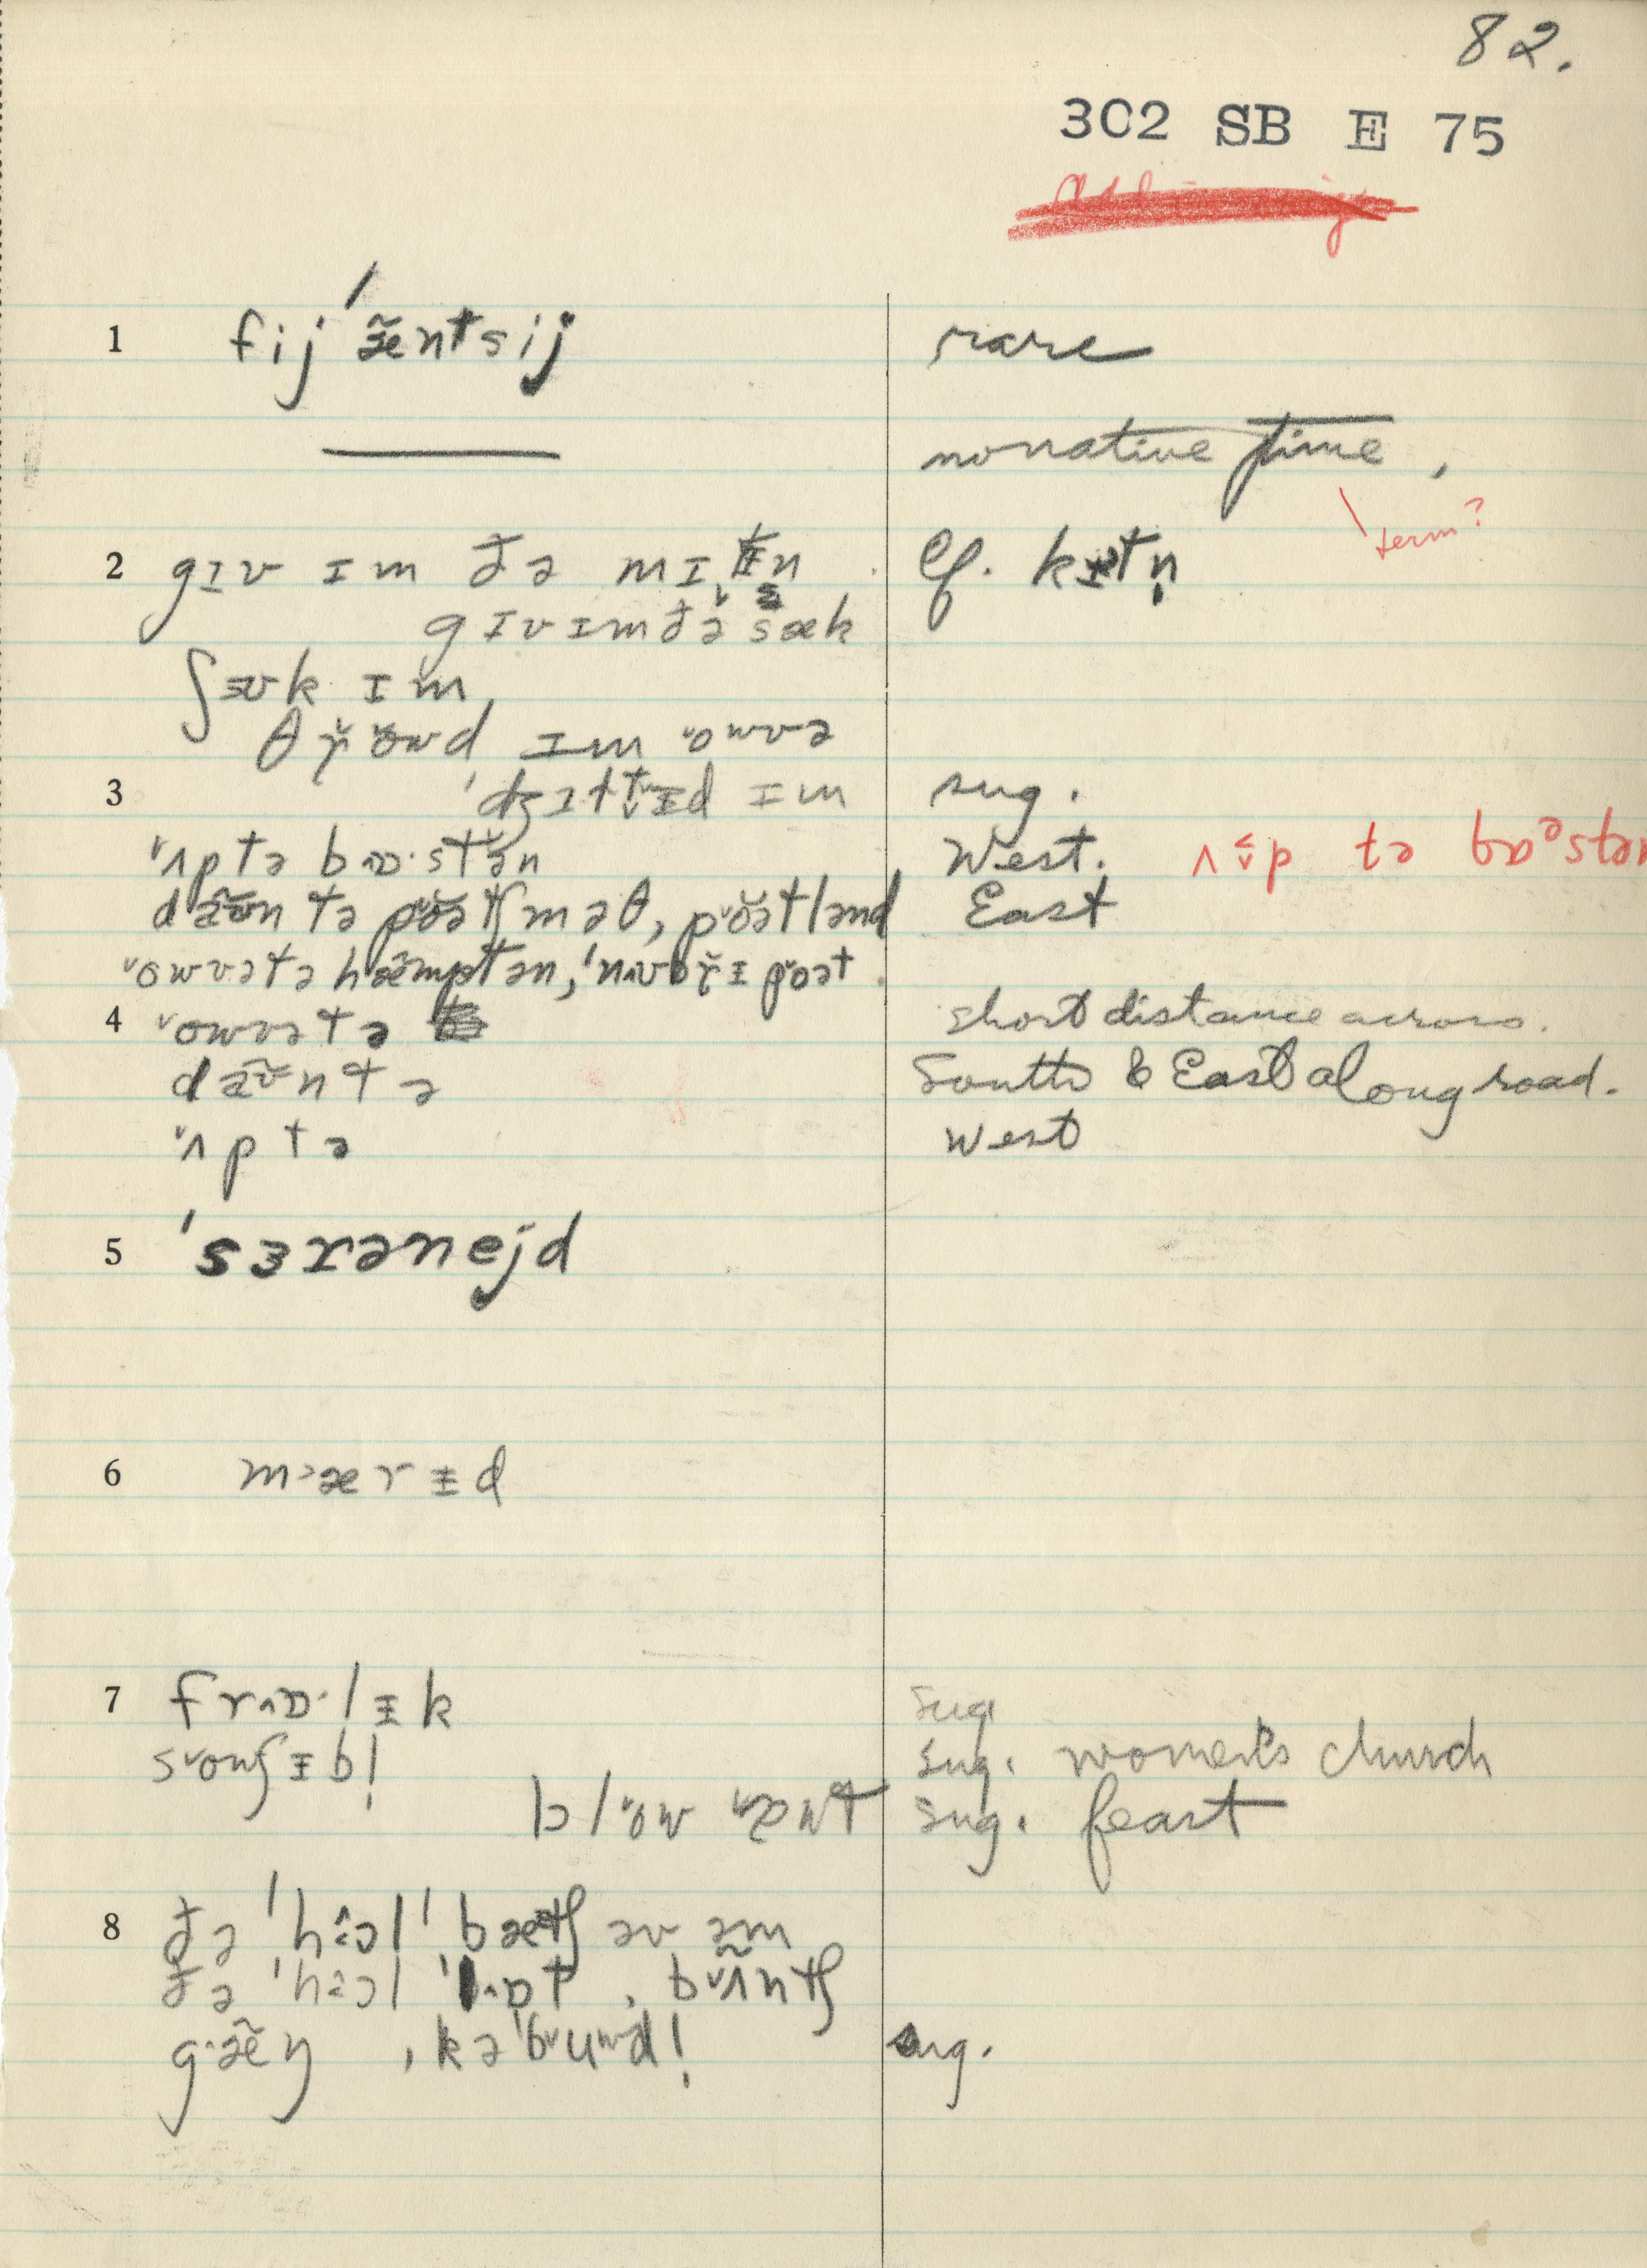 82.
302 SB E 75
1 fij ˈæ̃ntsij rare
no native time,
term?
2 gɪv ɪm ðə mɪtn̩ Cf. kɪtn̩
gɪvɪmðə sæk
ʃʊk ɪm
θr̆owd ɪm ˇowvə
3 ˈdʒɪltɨd ɪm sug.
ˇʌp tə bɒ·stən West. ʌp tə bɒəstən
dæ̃ʊn tə pˇoətʃməθ, pˇoətlənd East
ˇowvətə hæ̃mptən, ˈnʌvbr̆ɪpoət
4 ˇowvə tə short distance across.
dæ̃ʊn tə South & East along road.
ˇʌp tə West
5 ˈsɜrənejd
6 m>ærɨd
7 frɒ·lɨk sug.
sˇowʃɨb! sug. women's church
blˇow sug. feast
8 ðə ˈhɔl ˈbætʃ əv əm
ðə ˈhɔl ˈlɒt, bˇʌ̃ntʃ
gæ̃ŋ, kəˈbuwd! sug.